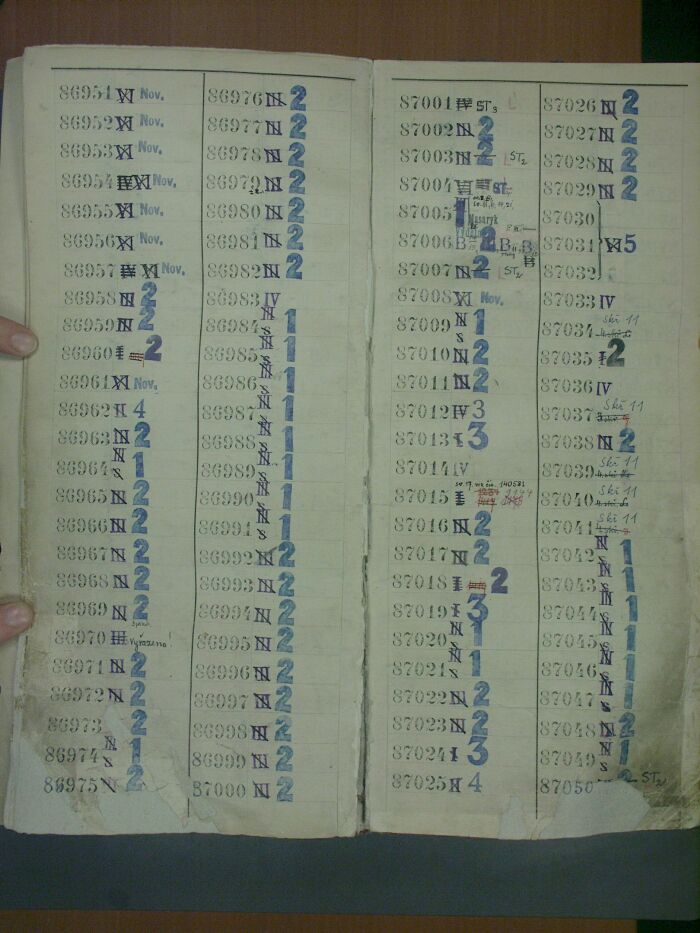 86951 XI Nov.
86952 XI Nov.
86953 XI Nov.
86954 XI Nov.
86955 XI Nov.
86956 XI Nov.
86957 XI Nov.
86958 N 2
86959 N 2
86960 I 2
86961 XI Nov.
86962 II 4
86963 N 2
86964 N s 1
86965 N 2
86966 N 2
86967 N 2
86968 N 2
86969 N 2
86970 III vyřazeno!
86971 N 2
86972 N 2
86973 2
86974 N s 1
86975 N 2
86976 N 2
86977 N 2
86978 N 2
86979 N 2
86980 N 2
86981 N 2
86982 N 2
86983 IV
86984 N s 1
86985 N s 1
86986 N s 1
86987 N s 1
86988 N s 1
86989 N s 1
86990 N s 1
86991 N s 1
86992 N 2
86993 N 2
86994 N 2
86995 N 2
86996 N 2
86997 N 2
86998 N 2
86999 N 2
87000 N 2
87001 IV ST3
87002 N 2
87003 N 2 ST2
87004 ST
87005 1 Masaryk
87006 B 2 B B
87007 N 2 ST2
87008 XI Nov.
87009 N s 1
87010 N 2
87011 N 2
87012 IV 3
87013 I 3
87014 IV
87015 140581
87016 N 2
87017 N 2
87018 I 2
87019 I 3
87020 N s 1
87021 N s 1
87022 N 2
87023 N 2
87024 I 3
87025 II 4
87026 N 2
87027 N 2
87028 N 2
87029 N 2
87030
87031 VI 5
87032
87033 IV
87034 Skř 11
87035 I 2
87036 IV
87037 Skř 11
87038 N 2
87039 Skř 11
87040 Skř 11
87041 Skř 11
87042 N s 1
87043 N s 1
87044 N s 1
87045 N s 1
87046 N s 1
87047 N s 1
87048 N 2
87049 N s 1
87050 2 ST2